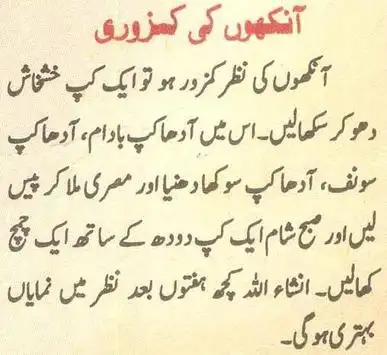 آنکھوں کی کمزوری
آنکھوں کی نظر کمزور ہو تو ایک کپ خشخاش
دھو کر سکھالیں۔ اس میں آدھا کپ بادام، آدھا کپ
سونف، آدھا کپ سوکھا دھنیا اور مصری ملا کر پیس
لیں اور صبح شام ایک کپ دودھ کے ساتھ ایک چمچ
کھالیں۔ انشاء اللہ کچھ ہفتوں بعد نظر میں نمایاں
بہتری ہوگی۔